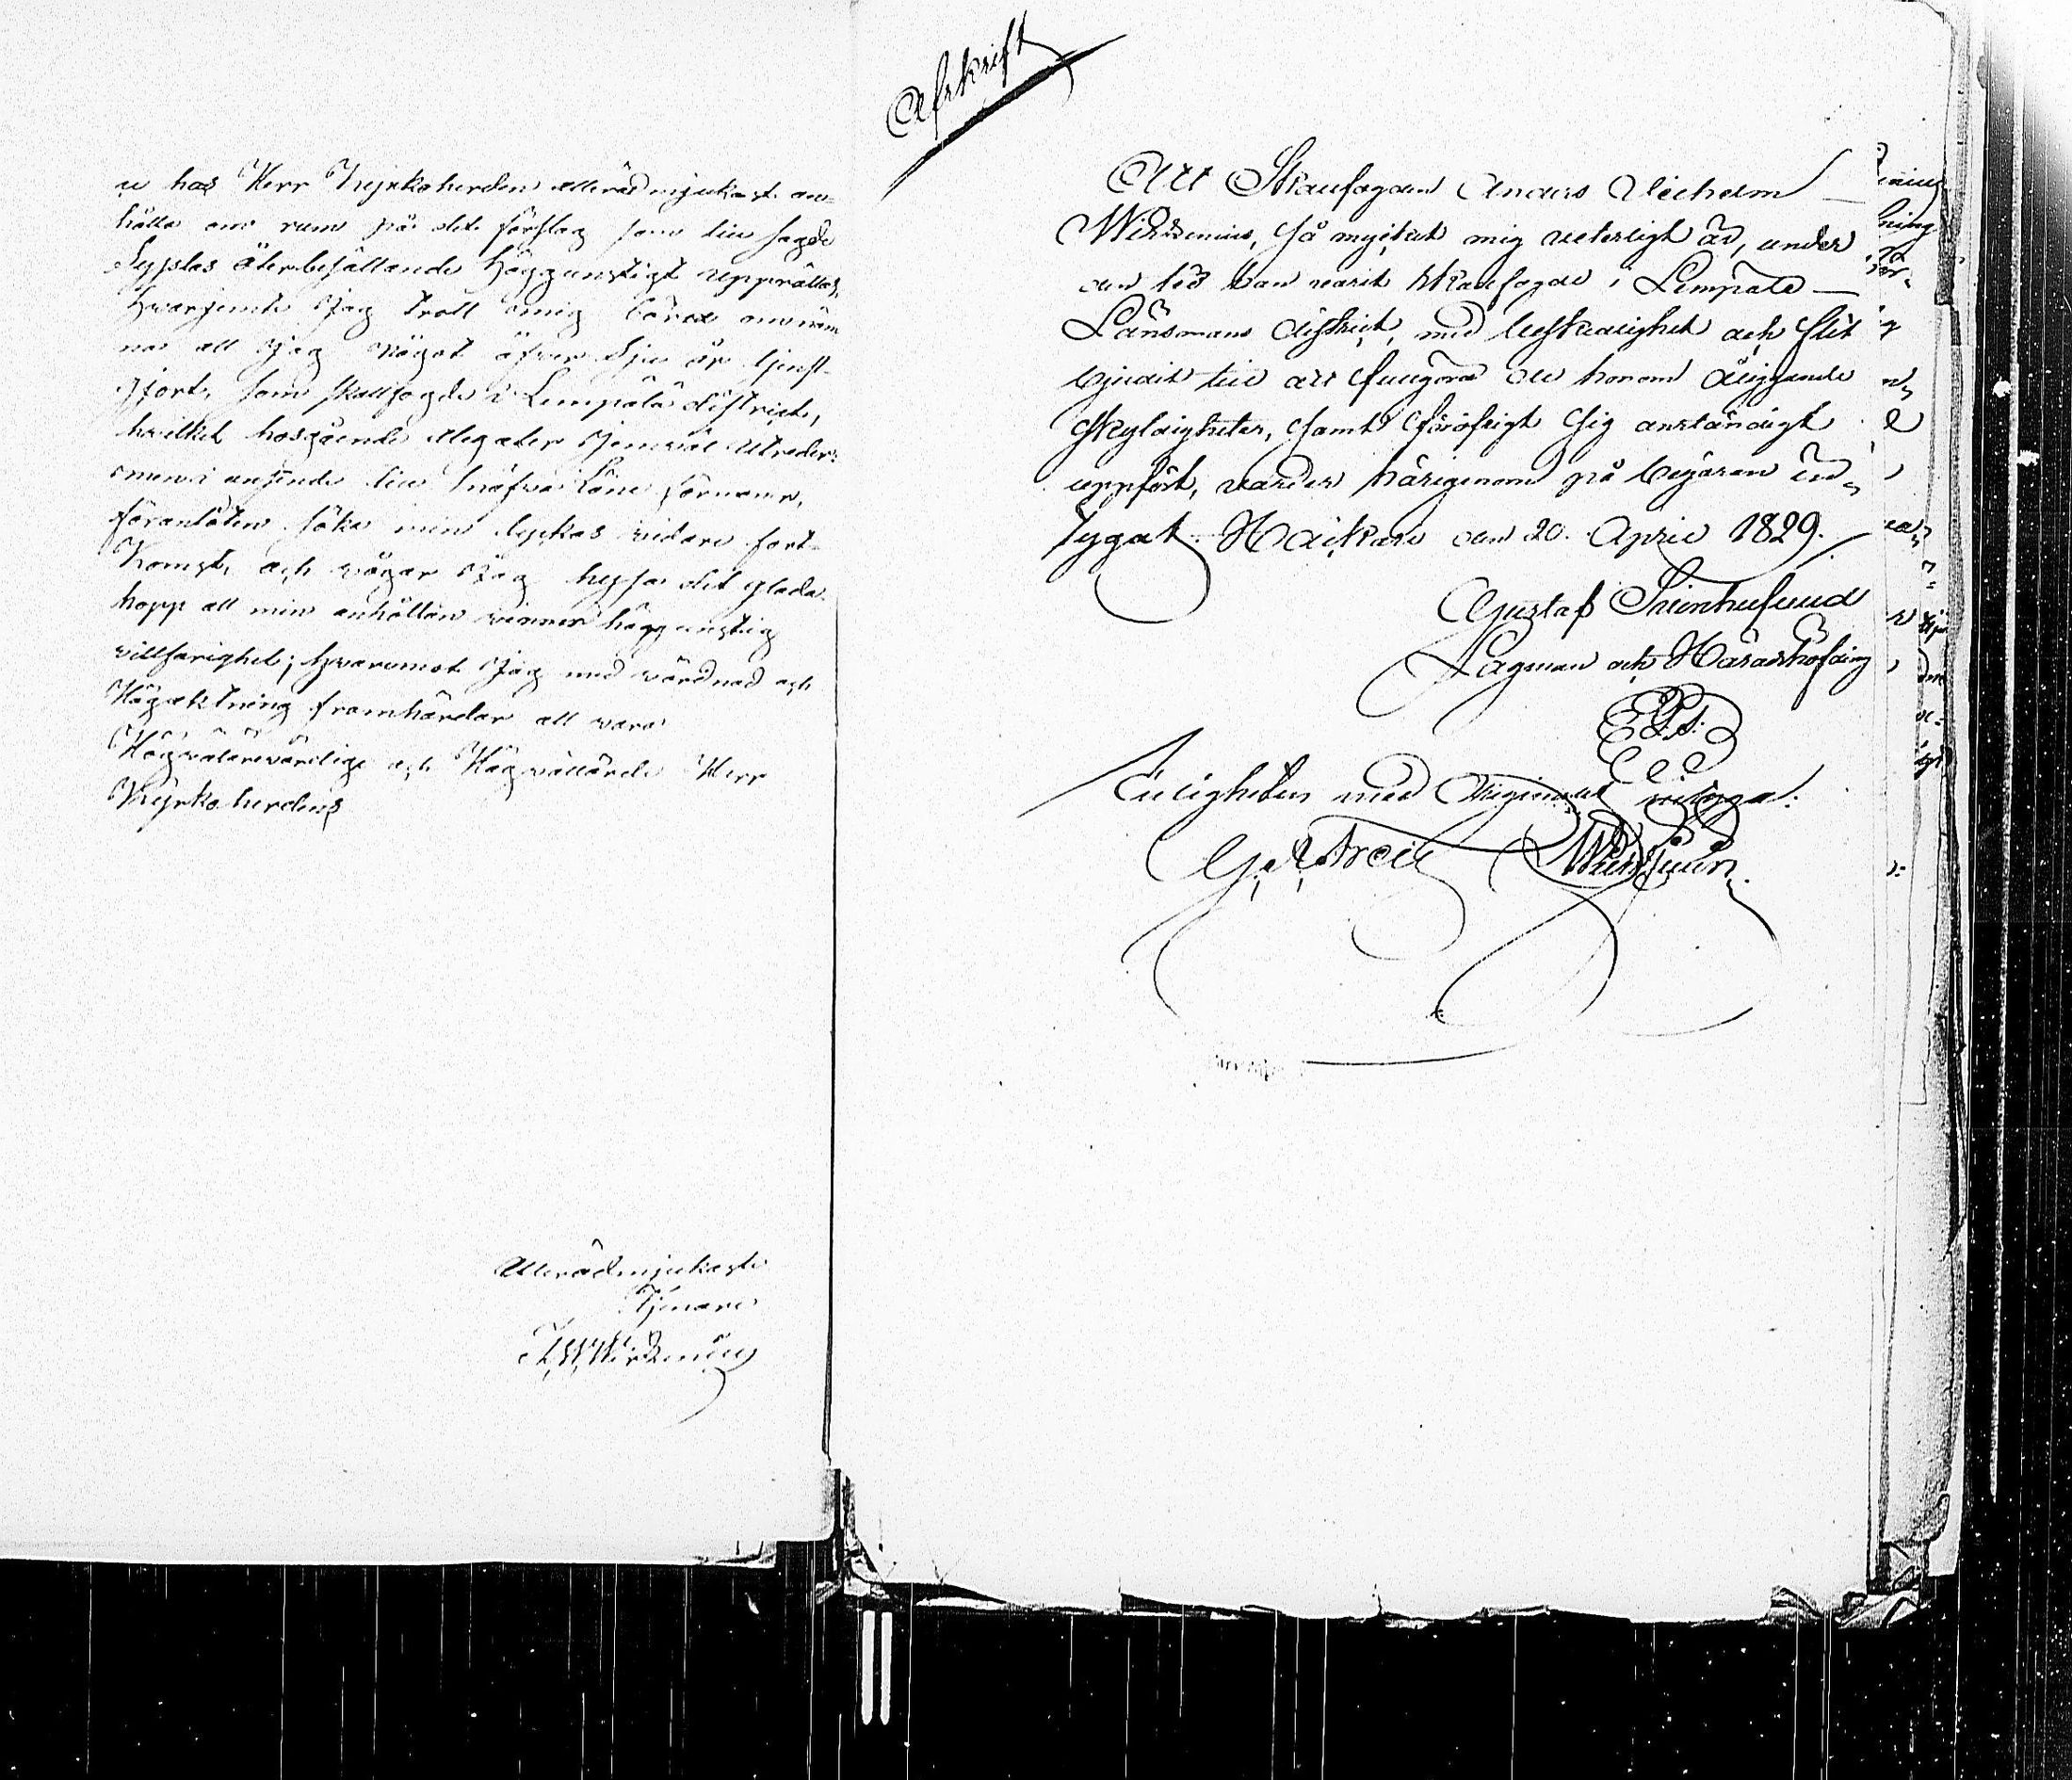 u hos Herr Kyrkoherden allerödmjukast an-
hålla om rum på det förslag som till sagde
Sysslas återbesättande höggunstigt upprättas,
hvarjemte Jag trott mig böra omnäm
na att Jag något öfver Sju år tjenst-
gjort, som skallfogde i Lempälä district,
hvilket hosgående Allegater jemväl utreder:
men i anseende till knappa Löne förmoner,
föranlåten söka min lyckas vidare fort-
komst, och vågar Jag hysa det glada
hopp att min anhållan vinner höggunstig
villfarighet; hvaremot Jag med vördnad och
Högaktning framhärdar att vara
Högvälärevördige och Höglärde Herr
Kyrkoherdens
Allerödmjukaste
Tjenare
A. W. Wirzenius
Afskrift
Att Skallfogden Anders Vilhelm
Wirzenius, så mycket mig veterligt är, under
den tid han varit skallfogde i Lempälä
Länsmans district, med beskedlighet och flit
bjudit till att fullgöra alla honom åliggande
skyldigheter, samt för öfrigt sig anständigt
uppfört, varder härigenom på begäran in-
tygat. Haikare den 20. April 1829.
Gustaf Svinhufvud
Lagman och Häradshöfding
L.S.
Likheten med Originalet intyga: